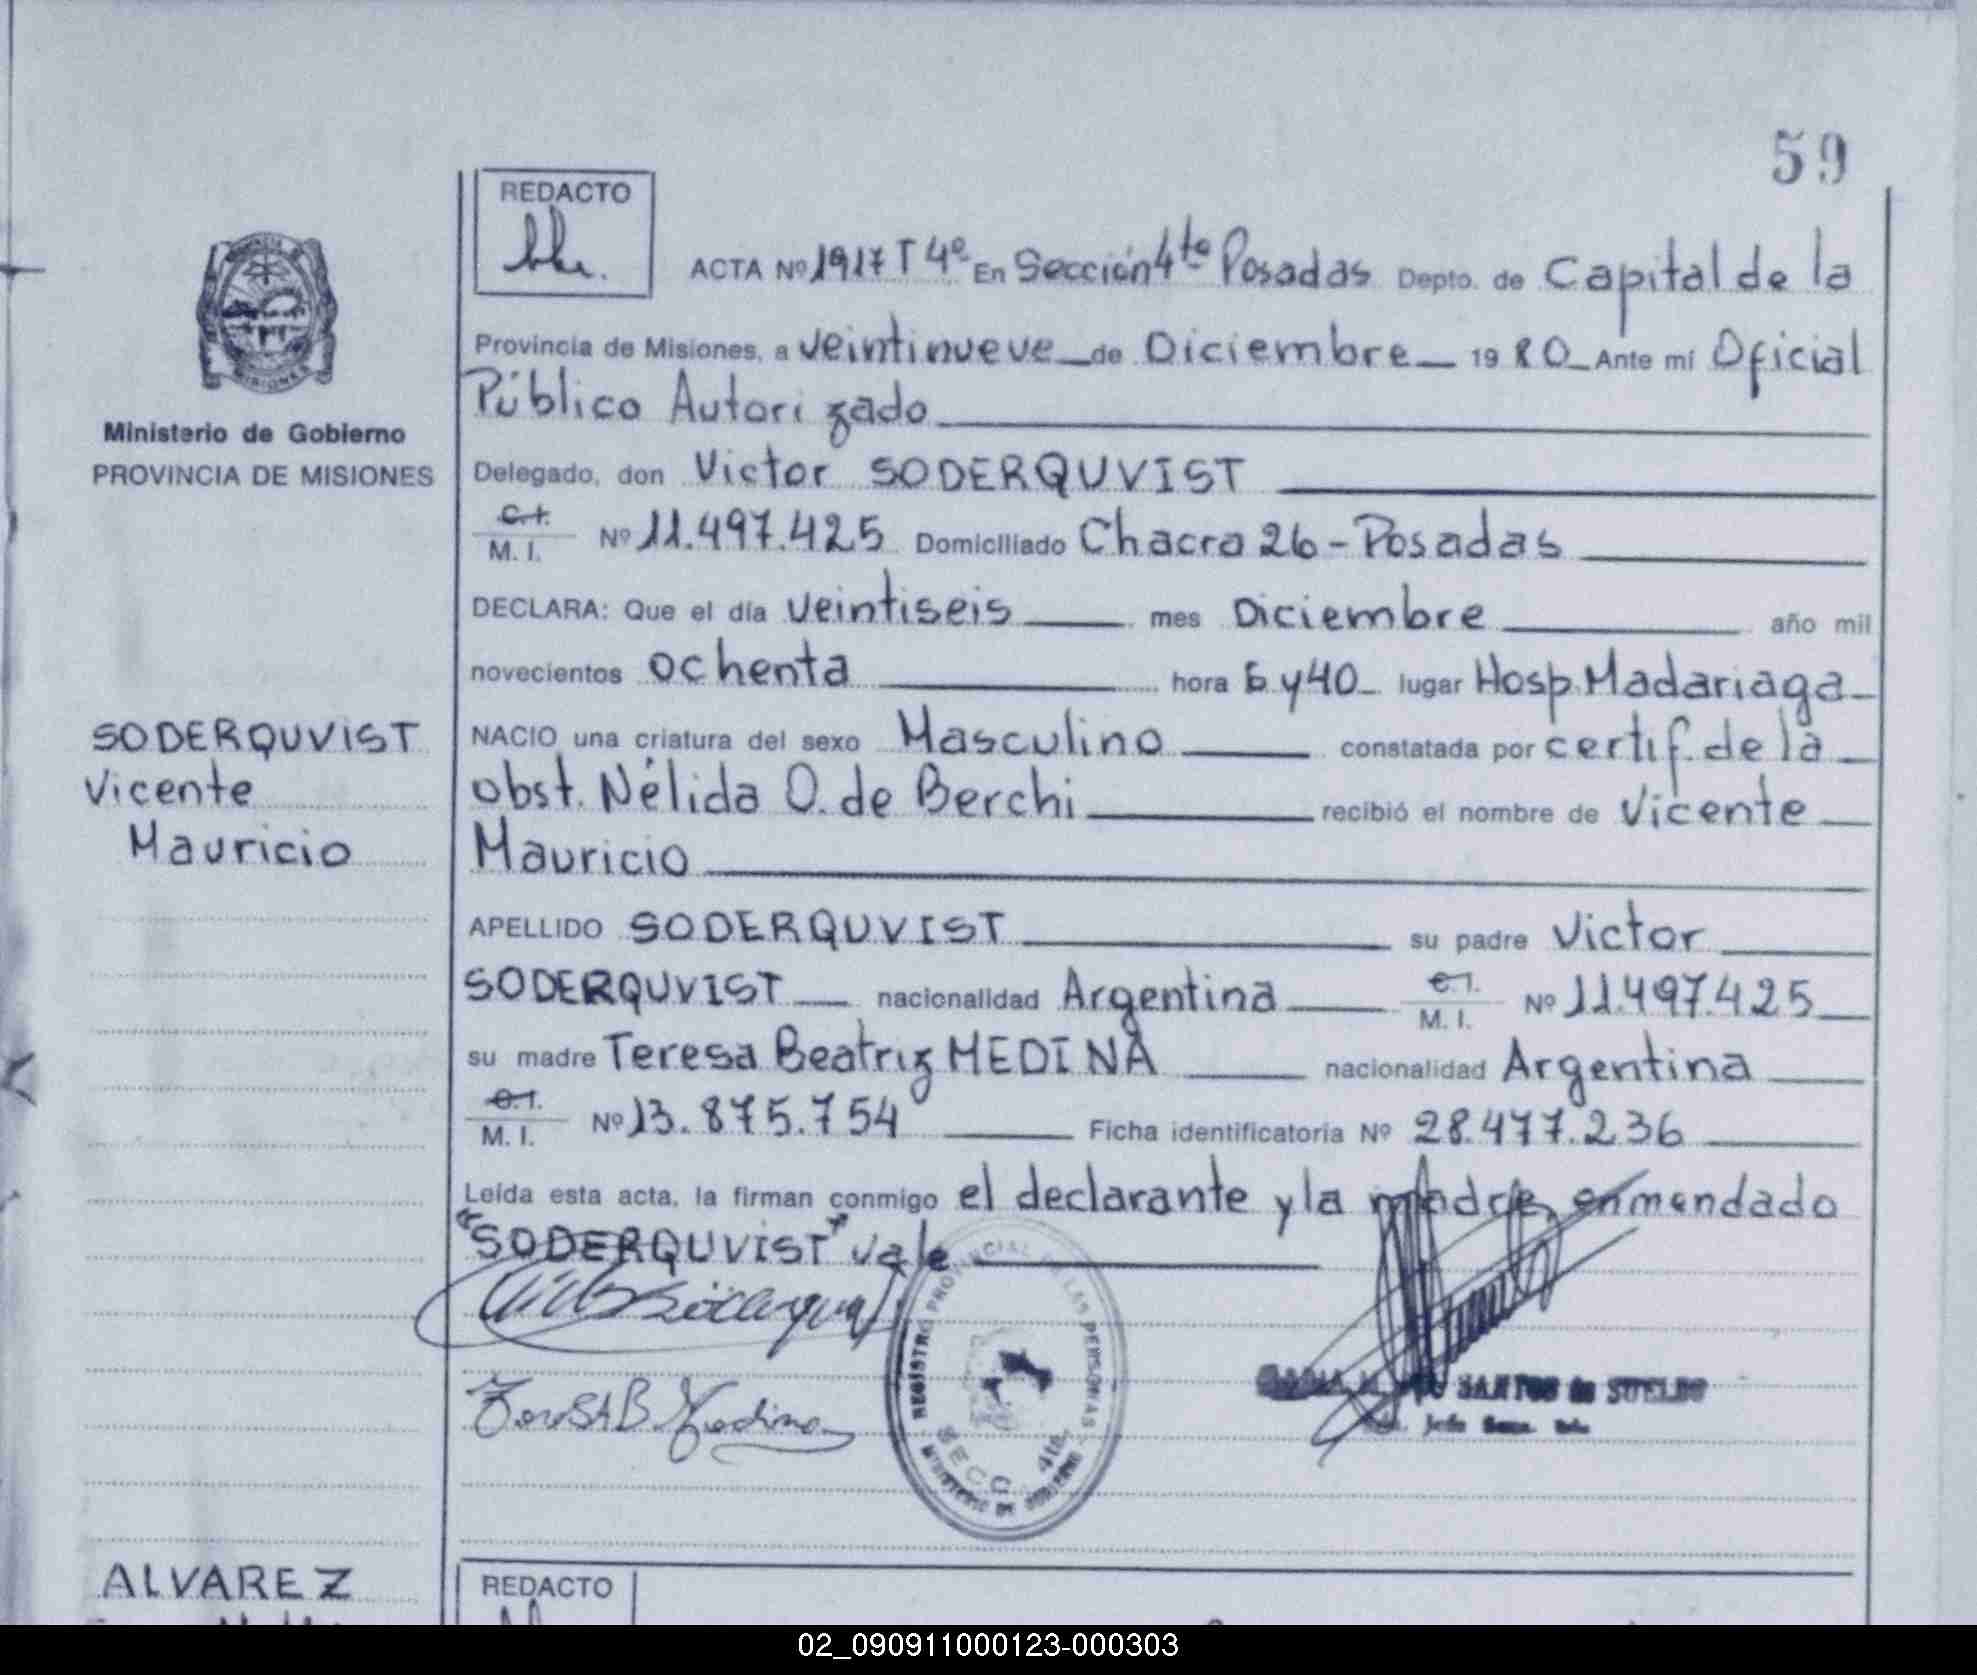 59
REDACTO
ACTA Nº 1917 T 4º En Sección 4ta Posadas Depto. de Capital de la
Provincia de Misiones, a veintinueve de Diciembre 1980 Ante mí Oficial
Público Autorizado
Ministerio de Gobierno
PROVINCIA DE MISIONES
Delegado, don Victor SODERQUVIST
C.I. M. I. Nº 11.497.425 Domiciliado Chacra 26 - Posadas
DECLARA: Que el día veintiseis mes Diciembre año mil
novecientos ochenta hora 6 y 40 lugar Hosp. Madariaga
SODERQUVIST
Vicente
Mauricio
NACIO una criatura del sexo Masculino constatada por certif. de la
obst. Nélida O. de Berchi recibió el nombre de Vicente
Mauricio
APELLIDO SODERQUVIST su padre Victor
SODERQUVIST nacionalidad Argentina C.I. M. I. Nº 11.497.425
su madre Teresa Beatriz MEDINA nacionalidad Argentina
C.I. M. I. Nº 13.875.754 Ficha identificatoria Nº 28.477.236
Leída esta acta, la firman conmigo el declarante y la madre, enmendado
"SODERQUVIST" vale
REGISTRO PROVINCIAL DE LAS PERSONAS
SECC. 4ta.
MINISTERIO DE GOBIERNO
SANTOS de SUELDO
ALVAREZ
REDACTO
02_090911000123-000303